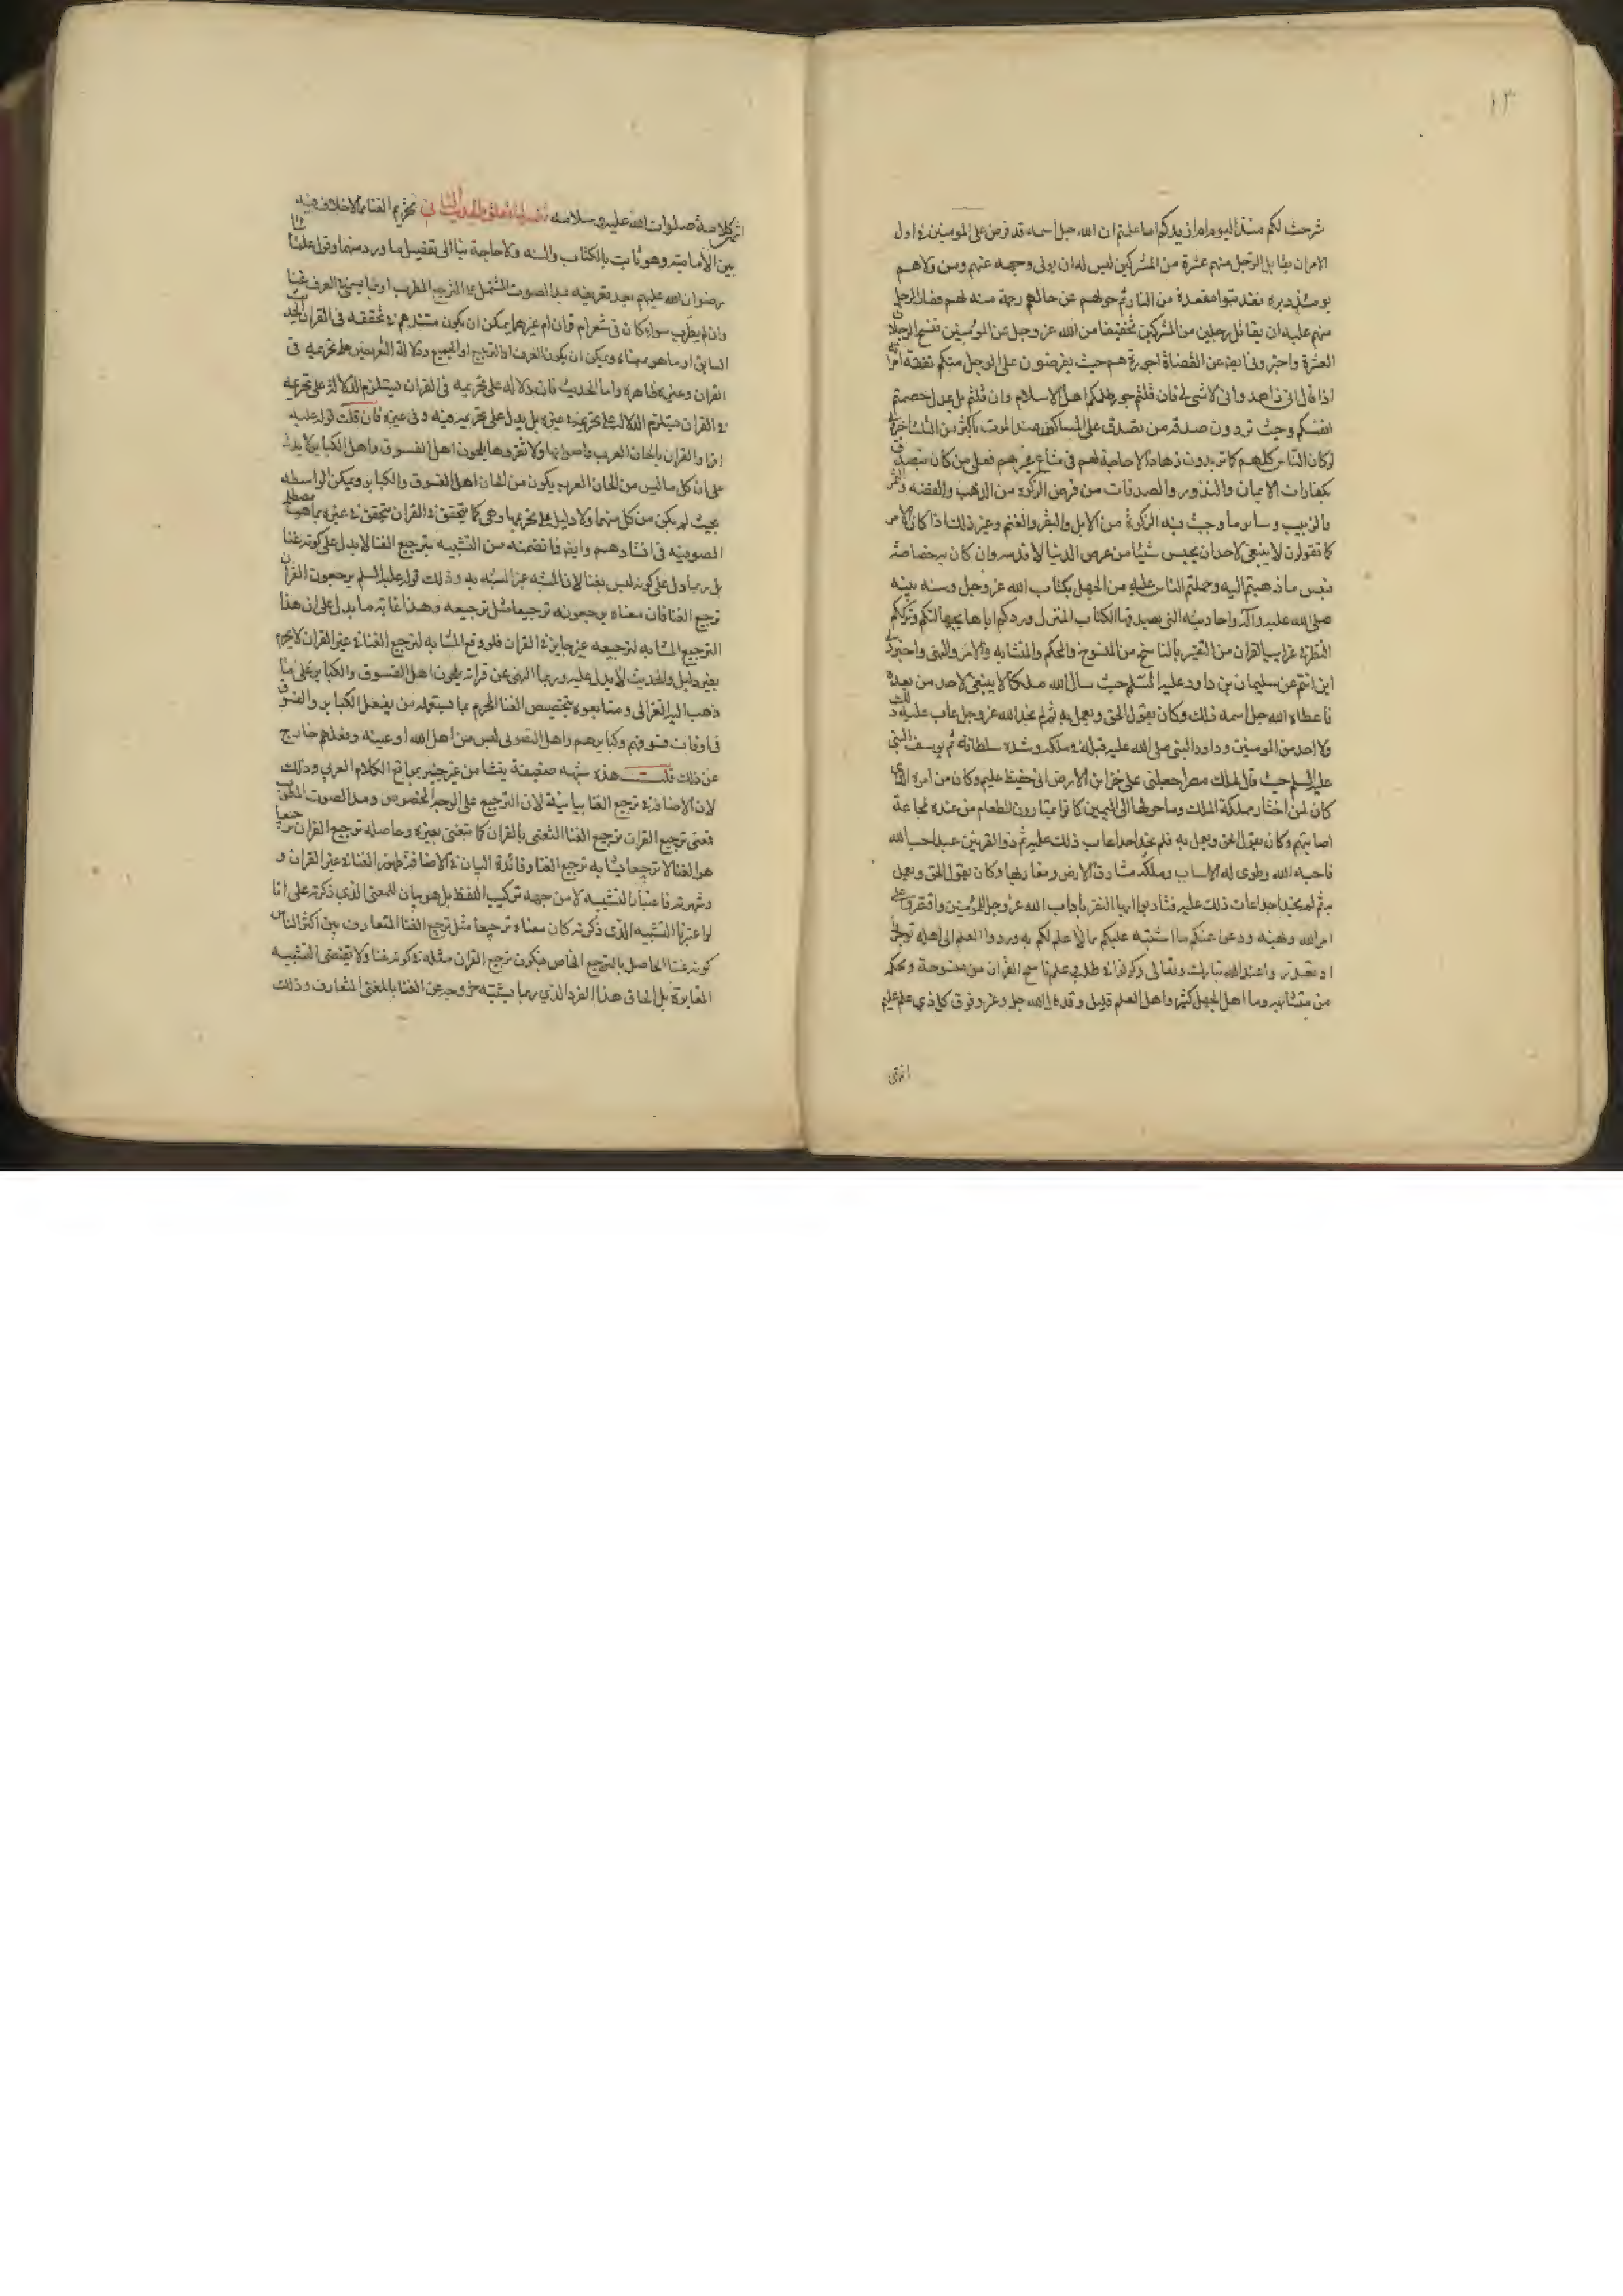 ١٣
شرحت لكم منذ اليوم ام ان يدكم اما علمتم ان الله جل اسمه قد فرض على المومنين في اول
الامر ان يقاتل الرجل منهم عشرة من المشركين ليس له ان يولى وجهه عنهم ومن ولاهم
يومئذ دبره فقد تبوا مقعده من النار ثم حولهم عن حالهم رحمة منه لهم فصار الرجل
منهم عليه ان يقاتل رجلين من المشركين تخفيفا من الله عز وجل عن المؤمنين فنسخ الرجلان
العشرة واخبرونى ايضا عن القضاة اجورة هم حيث يفرضون على الرجل منكم نفقة امراته
اذا قال انى زاهد وانى لا شى لى فان قلتم جور ظلمكم اهل الاسلام وان قلتم بل عدل خصمتم
انفسكم وحيث تردون صدقة من تصدق على المساكين عند الموت باكثر من الثلث اخبرونى
لو كان الناس كلهم كما تريدون زهادا لا حاجة لهم فى متاع غيرهم فعلى من كان تصدق
بكفارات الايمان والنذور والصدقات من فرض الزكوة من الذهب والفضه والتمر
والزبيب وساير ما وجبت فيه الزكوة من الابل والبقر والغنم وغير ذلك اذا كان الامر
كما تقولون لا ينبغى لاحد ان يحبس شيئا من عرض الدنيا الا قدمه وان كان به خصاصة
فبئس ما ذهبتم اليه وحملتم الناس عليه من الجهل بكتاب الله عز وجل وسنه نبيه
صلى الله عليه وآله واحاديثه التى يصدقها الكتاب المنزل وردكم اياها بجهالتكم وترككم
النظر في غرايب القران من التفسير بالناسخ من المنسوخ والمحكم والمتشابه والامر والنهى واخبرونى
اين انتم عن سليمان بن داود عليه السلم حيث سال الله ملكا لا ينبغى لاحد من بعده
فاعطاه الله جل اسمه ذلك وكان يقول الحق ويعمل به ثم لم نجد الله عز وجل عاب عليه ذلك
ولا احد من المومنين وداود النبى صلى الله عليه قبله في ملكه وشده سلطانه ثم يوسف النبى
عليه السلم حيث قال لملك مصر اجعلنى على خزاين الارض انى حفيظ عليم وكان من امره الذى
كان لمن اختار مملكة الملك وما حولها الى اليمين كانوا يمتارون الطعام من عنده لمجاعة
اصابتهم وكان يقول الحق ويعمل به فلم نجد احدا عاب ذلك عليه ثم ذو القرنين عبد احب الله
فاحبه الله وطوى له الاسباب وملكه مشارق الارض ومغاربها وكان يقول الحق ويعمل
به ثم لم نجد احدا عاب ذلك عليه فتادبوا ايها النفر باداب الله عز وجل للمؤمنين واقتصروا على
امر الله ونهيه ودعوا عنكم ما اشتبه عليكم مما لا علم لكم به وردوا العلم الى اهله توجروا
وتعذروا عند الله تبارك وتعالى وكونوا في طلب علم ناسخ القران من منسوخه ومحكمه
من متشابهه وما اهل الجهل كثير واهل العلم قليل وقد قال الله جل وعز وفوق كل ذى علم عليم
انتهى
انتهى كلامه صلوات الله عليه وسلامه تحريم الغنا مما لا خلاف فيه
بين الامامية وهو ثابت بالكتاب والسنه ولا حاجة بنا الى تفصيل ما ورد منهما وقول علمائنا
رضوان الله عليهم بعد تعريفه بمد الصوت المشتمل على الترجيع المطرب او بما يسمى في العرف غنا
وان لم يطرب سواء كان فى شعر ام قران ام غيرهما يمكن ان يكون مستندهم في تحققه فى القران الحديث
السابق او ما هو بمعناه ويمكن ان يكون العرف او الترجيع او الجميع ودلالة التعريفين على تحريمه فى
القران وغيره ظاهرة واما الحديث فان دلالته على تحريمه فى القران يستلزم الدلالة على تحريمه
في القران يستلزم الدلالة على تحريمه في غيره بل يدل على تحريمه فيه وفى غيره فان قلت قوله عليه
اقراوا القران بالحان العرب واصواتها ولا تقروها بلحون اهل الفسوق واهل الكباير لا يدل
على ان كل ما ليس من الحان العرب يكون من الحان اهل الفسوق والكباير ويمكن الواسطه
بحيث لم يكن من كل منهما ولا دليل على تحريمها وهى كما يتحقق في القران يتحقق في غيره مما هو مصطلح
الصوفيه فى انشادهم وايضا فما تضمنه من التشبيه بترجيع الغنا لا يدل على كونه غنا
بل ربما دل على كونه ليس بغنا لان المشبه غير المشبه به وذلك قوله عليه السلم يرجعون القران
ترجيع الغنا فان معناه يرجعونه ترجيعا مثل ترجيعه وهذا غايته ما يدل على ان هذا
الترجيع المشابه لترجيعه غير جايز في القران فلو وقع المشابه لترجيع الغنا في غير القران لا يحرم
بغير دليل والحديث لا يدل عليه وربما النهى عن قراته بلحون اهل الفسوق والكباير على ما
ذهب اليه الغزالى ومتابعوه بتخصيص الغنا المحرم بما يستعمله من يفعل الكباير والفسوق
فى اوقات فسوقهم وكبايرهم واهل التصوف ليس من اهل الله او عينه وفعلهم خارج
عن ذلك قلت هذه شبهه ضعيفة ينشا من غير خبير بمواقع الكلام العربى وذلك
لان الاضافة في ترجيع الغنا بيانية لان الترجيع على الوجه المخصوص ومد الصوت المطرب
فمعنى ترجيع القران ترجيع الغنا التغنى بالقران كما يتغنى بغيره وحاصله ترجيع القران ترجيعا
هو الغنا لا ترجيعا شبيها به ترجيع الغنا وفائدة البيان في الاضافة ظهور الغنا في غير القران و
وشهرته فاعتبار التشبيه لا من جهة تركيب اللفظ بل هو بيان للمعنى الذى ذكرته على انا
لو اعتبرنا التشبيه الذى ذكرته كان معناه ترجيعا مثل ترجيع الغنا المتعارف بين اكثر الناس
كونه غنا الحاصل بالترجيع الخاص فيكون ترجيع القران مثله في كونه غنا ولا يقتضى التشبيه
المغايرة بل الحاق هذا الفرد الذى ربما يشتبه خروجه عن الغنا بالمعنى المتعارف وذلك